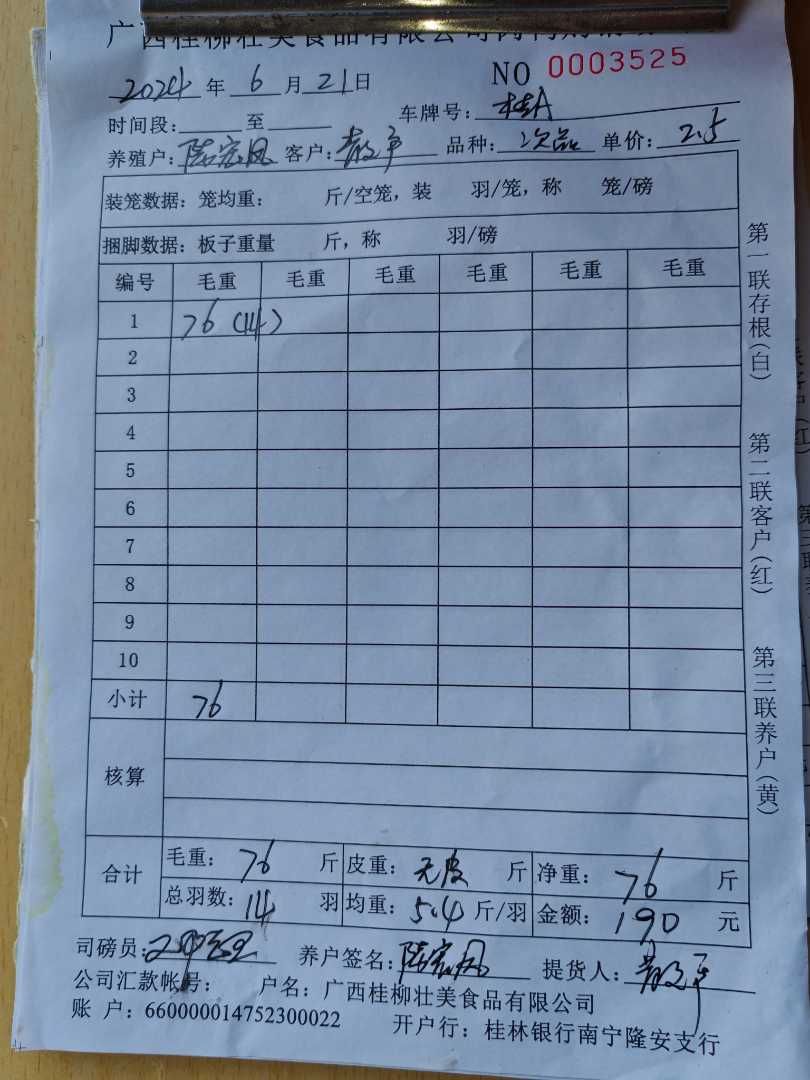 广西桂柳壮美食品有限公司
NO 0003525
2024 年 6 月 21 日
时间段: 至 车牌号: 桂A
养殖户: 陆宏凤 客户: 品种: 次品 单价: 2.5
装笼数据: 笼均重: 斤/空笼, 装 羽/笼, 称 笼/磅
捆脚数据: 板子重量 斤, 称 羽/磅
编号 毛重 毛重 毛重 毛重 毛重 毛重
1 76 (14)
2
3
4
5
6
7
8
9
10
小计 76
核算
合计 毛重: 76 斤 皮重: 无皮 斤 净重: 76 斤
总羽数: 14 羽 均重: 5.4 斤/羽 金额: 190 元
司磅员: 养户签名: 陆宏凤 提货人:
公司汇款帐号: 户名: 广西桂柳壮美食品有限公司
账 户: 660000014752300022 开户行: 桂林银行南宁隆安支行
第一联存根(白)
第二联客户(红)
第三联养户(黄)